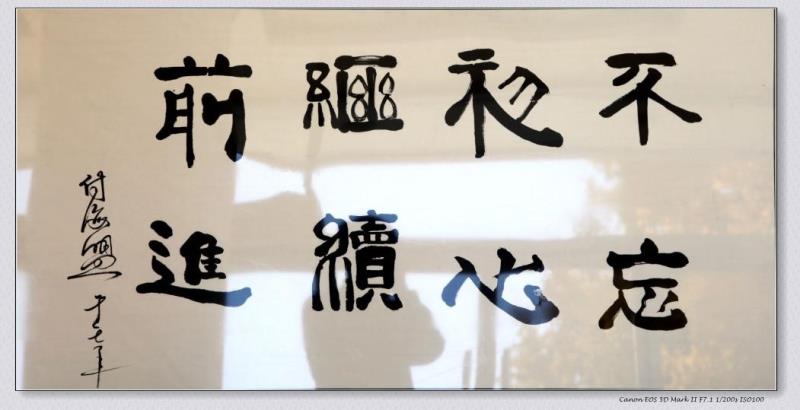 不忘
初心
繼續
前進
付海盟
于七年
Canon EOS 5D Mark II F7.1 1/200s ISO100